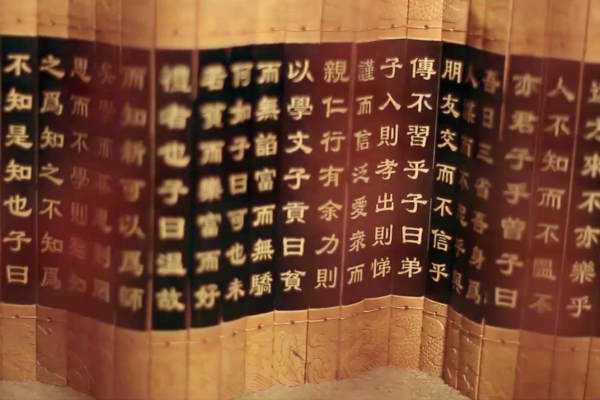 方來不亦樂乎
人不知而不慍不
亦君子乎曾子曰
吾日三省吾身爲
人謀而不忠乎與
朋友交而不信乎
傳不習乎子曰弟
子入則孝出則悌
謹而信泛愛衆而
親仁行有余力則
以學文子貢曰貧
而無諂富而無驕
何如子曰可也未
若貧而樂富而好
禮者也子曰温故
而知新可以爲師
矣學而不思則罔
思而不學則殆知
之爲知之不知爲
不知是知也子曰